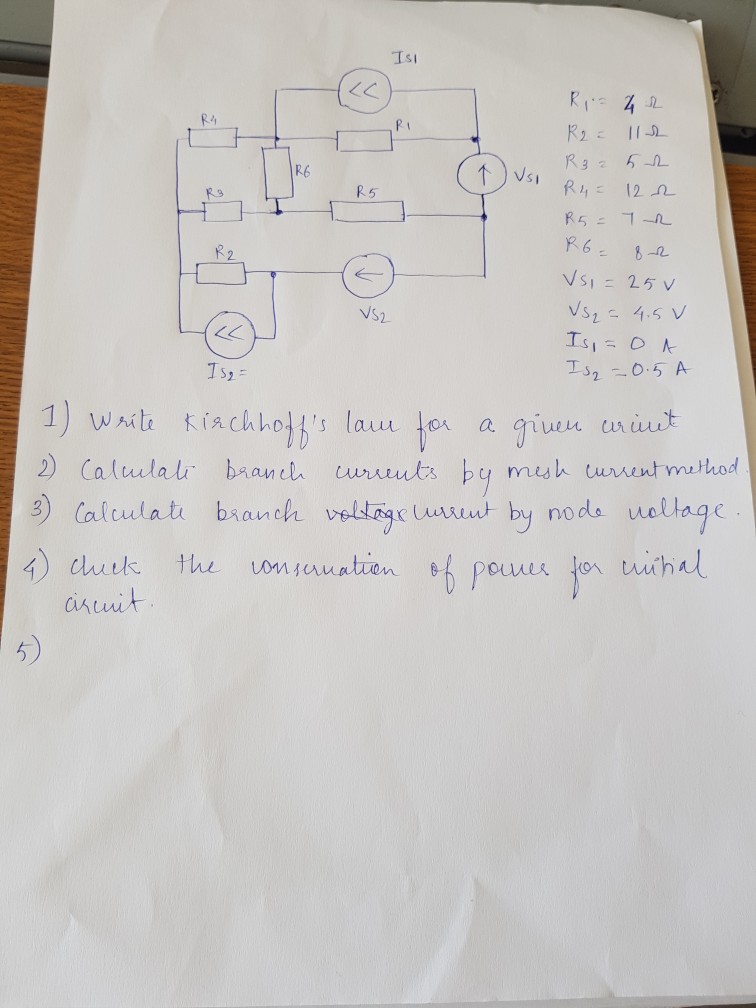 Is1
<<
R4
R1
R6
Vs1
R3
R5
R2
Vs2
<<
Is2=
R1 = 4 Ω
R2 = 11 Ω
R3 = 5 Ω
R4 = 12 Ω
R5 = 7 Ω
R6 = 8 Ω
Vs1 = 25 V
Vs2 = 4.5 V
Is1 = 0 A
Is2 = 0.5 A
1) Write Kirchhoff's law for a given circuit
2) Calculate branch currents by mesh current method.
3) Calculate branch voltage current by node voltage.
4) check the conservation of power for initial
circuit.
5)